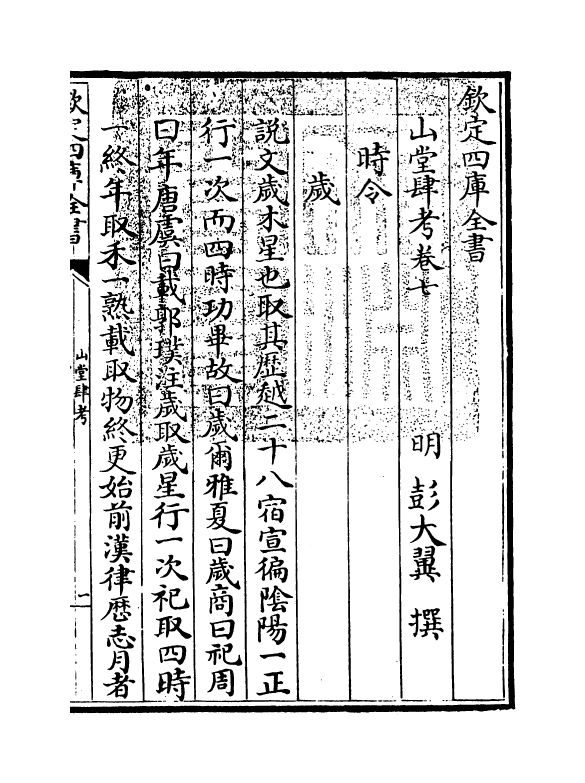 欽定四庫全書
山堂肆考卷七
明 彭大翼 撰
時令
歲
說文歲木星也取其歴越二十八宿宣徧陰陽一正
行一次而四時功畢故曰歲爾雅夏曰歲商曰祀周
曰年唐虞曰載郭璞注歲取歲星行一次祀取四時
一終年取禾一熟載取物終更始前漢律歴志月者
欽定四庫全書
山堂肆考
一